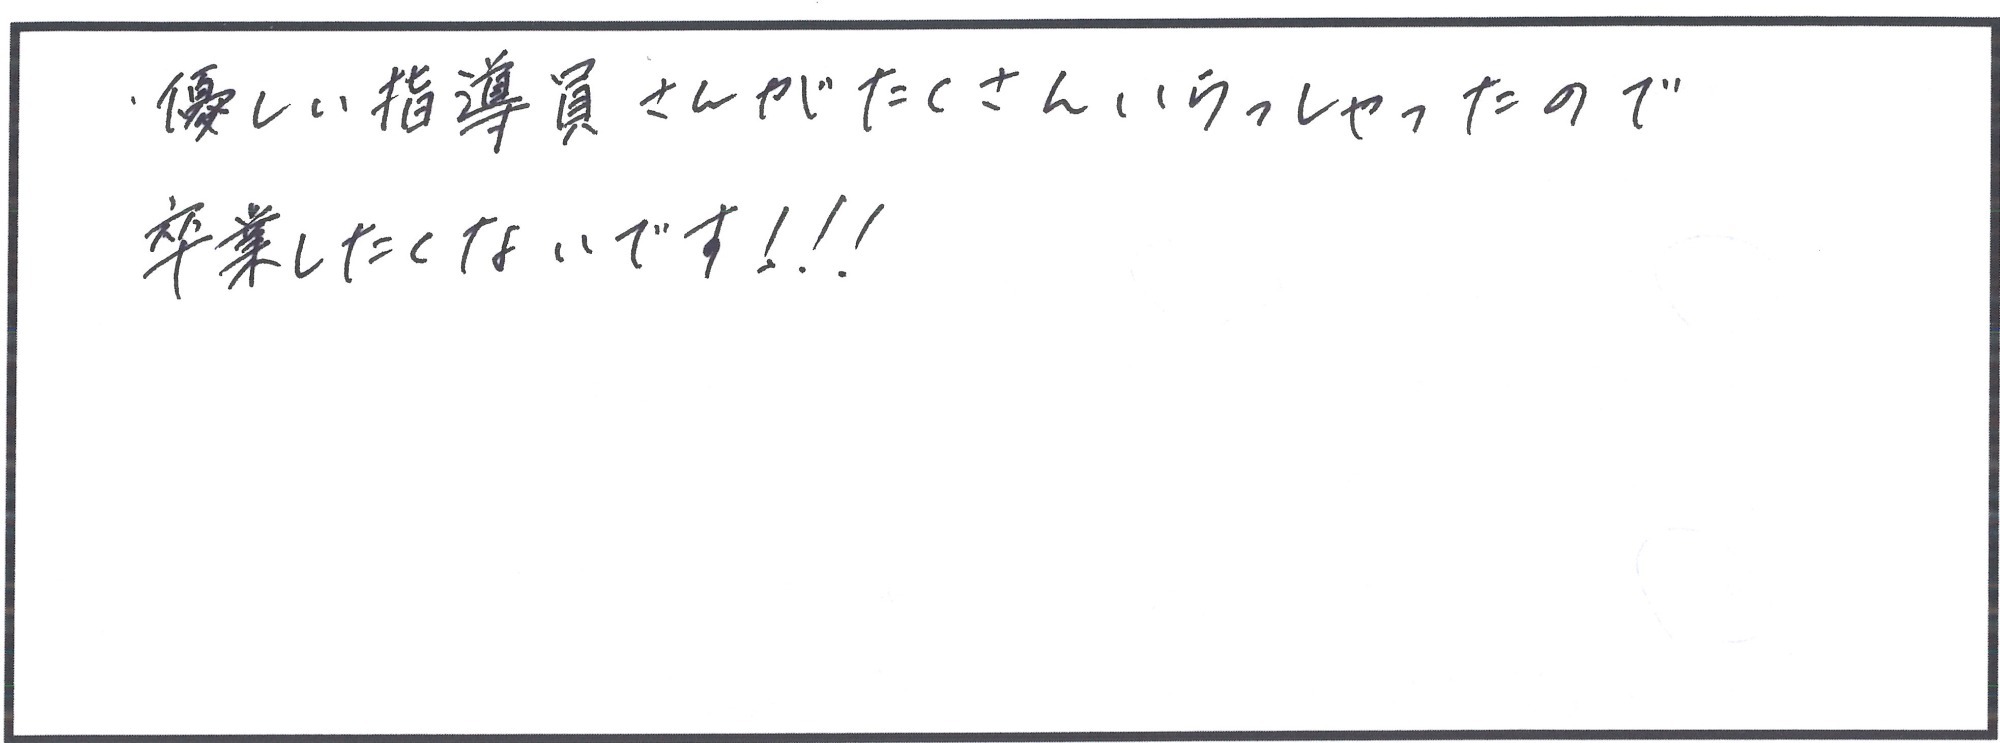 ・優しい指導員さんがたくさんいらっしゃったので
卒業したくないです!!!